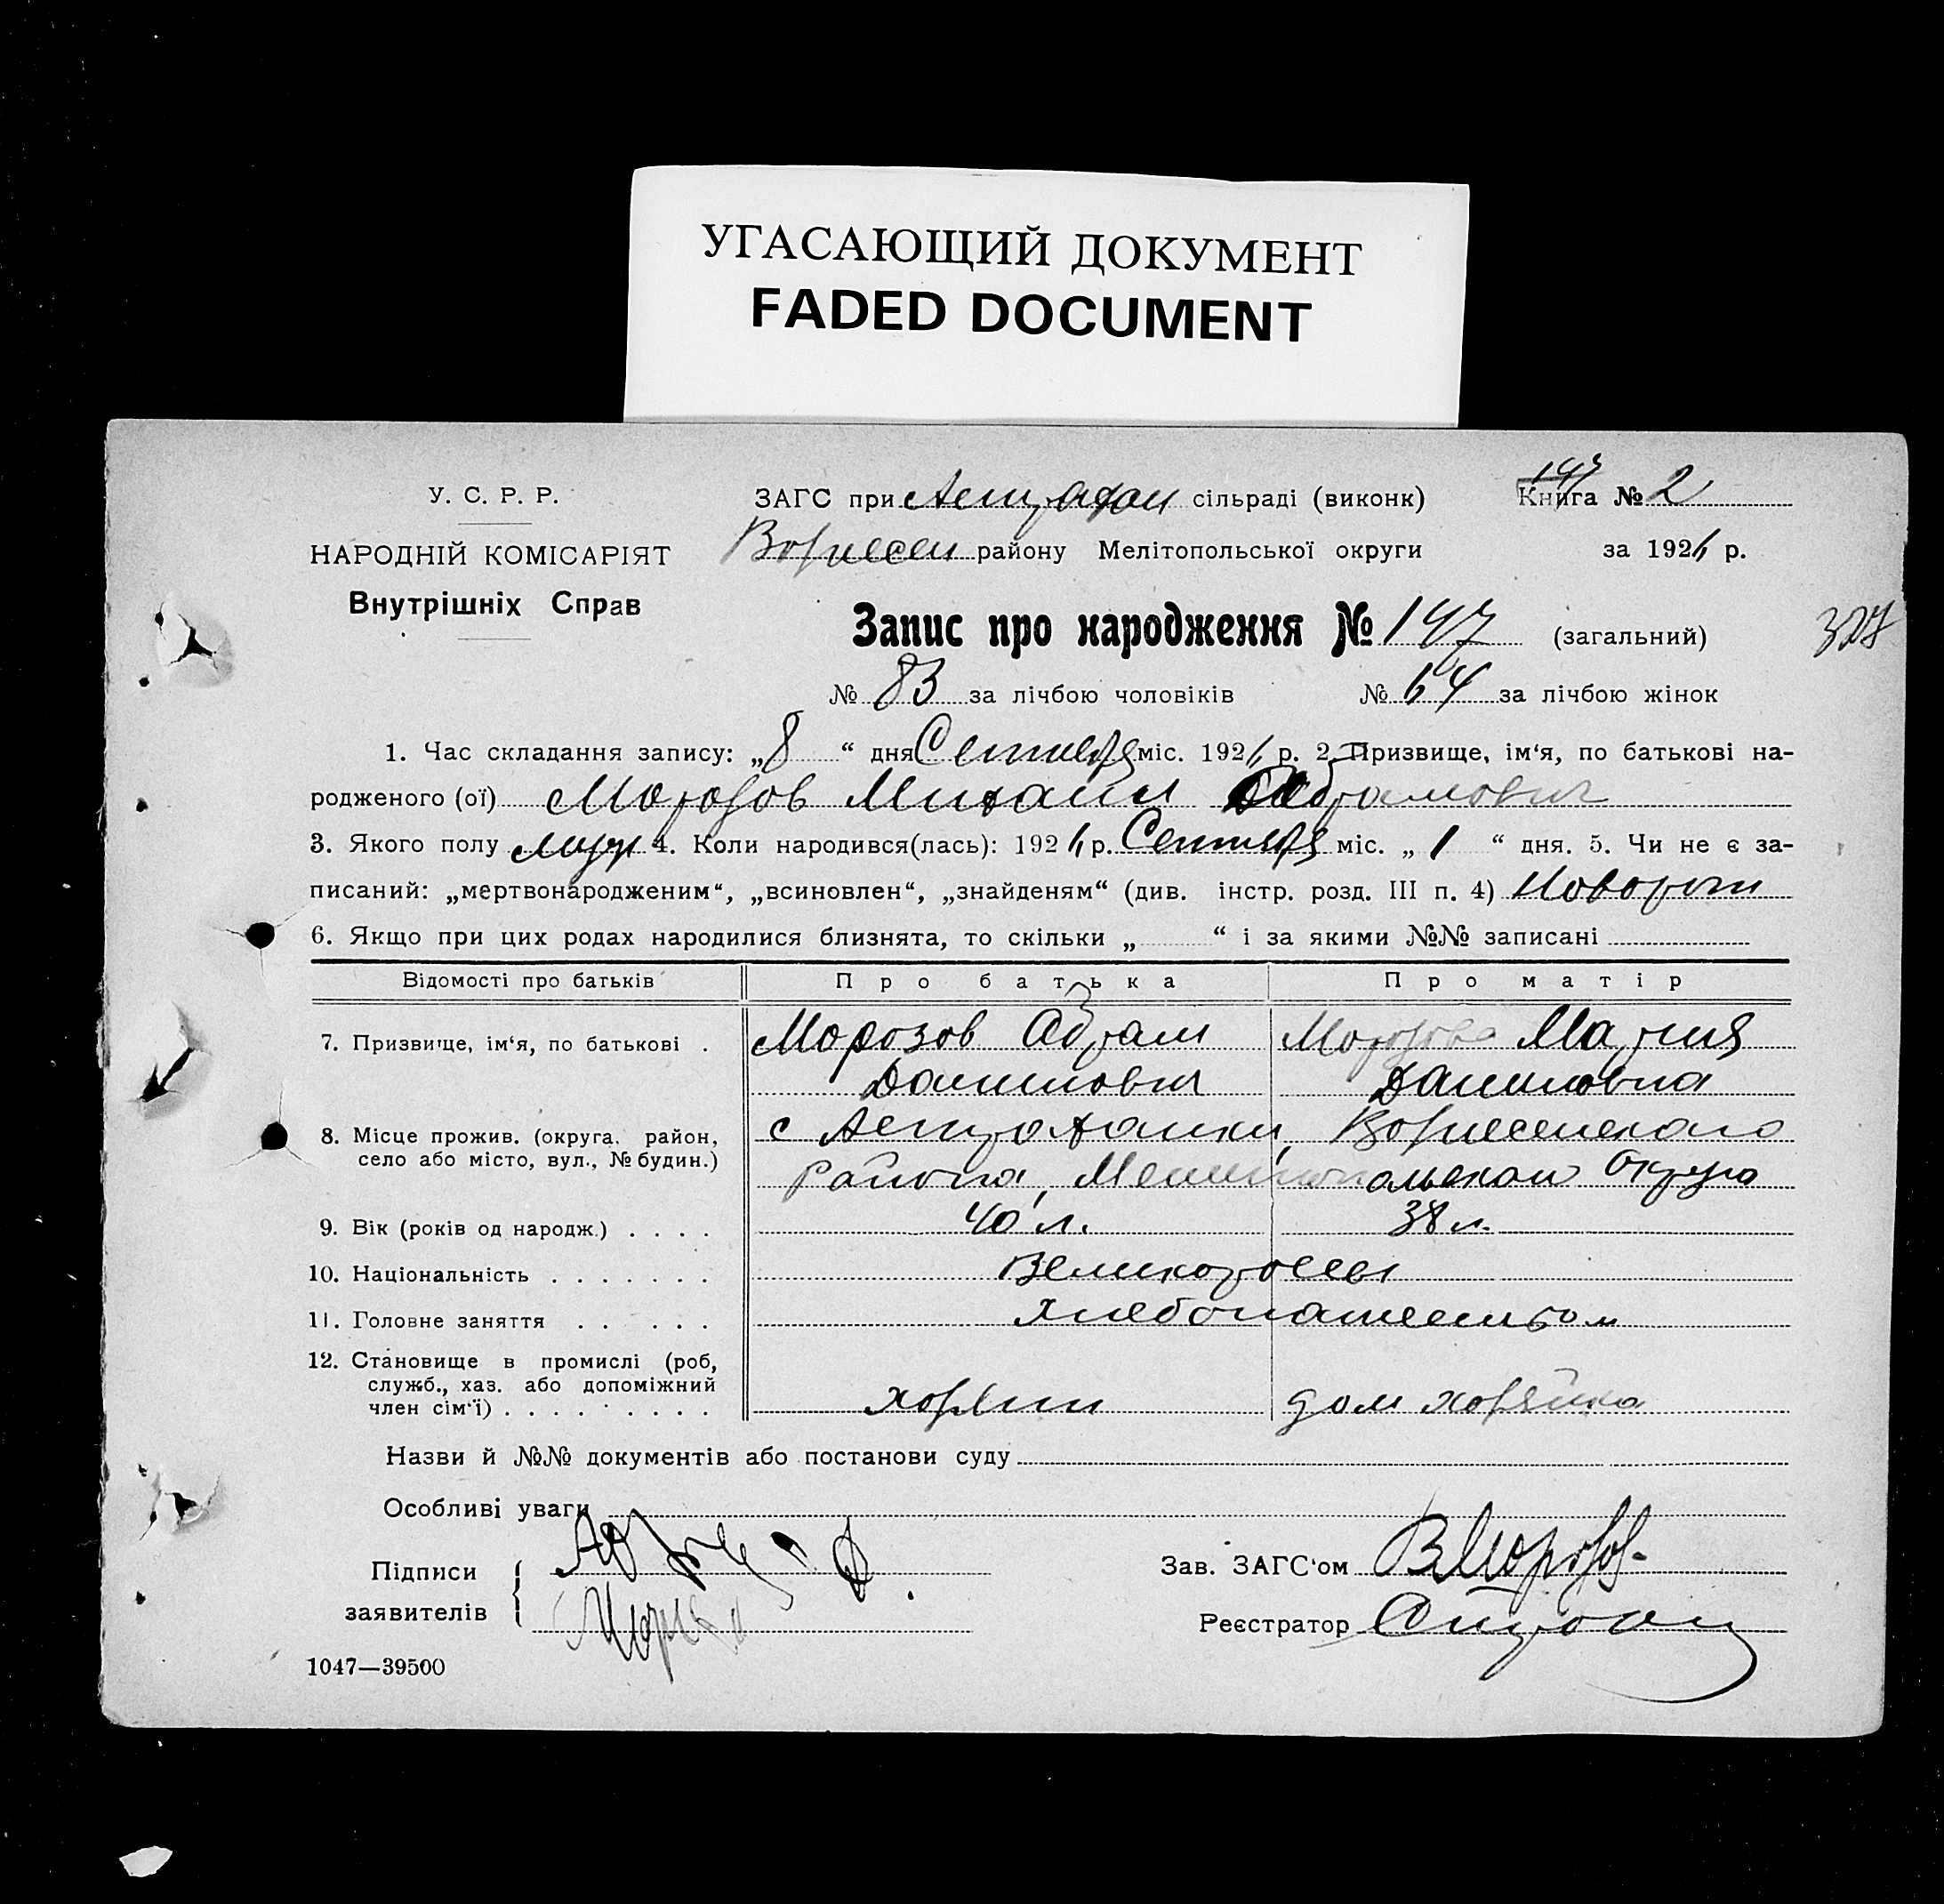 УГАСАЮЩИЙ ДОКУМЕНТ
FADED DOCUMENT
У. С. Р. Р.
НАРОДНІЙ КОМІСАРІЯТ
Внутрішніх Справ
ЗАГС при Астрахан сільраді (виконк)
Вознесен району Мелітопольської округи
147
Книга № 2
за 192 р.
Запис про народження № 147 (загальний)
327
№ 83 за лічбою чоловіків № 64 за лічбою жінок
1. Час складання запису: „8“ дня Сентября міс. 192 р. 2. Призвище, ім'я, по батькові на-
родженого (ої) Морозов Михаил Абрамович
3. Якого полу муж 4. Коли народився(лась): 192 р. Сентября міс. „1“ дня. 5. Чи не є за-
писаний: „мертвонародженим“, „всиновлен“, „знайденям“ (див. інстр. розд. III п. 4) Новорож
6. Якщо при цих родах народилися близнята, то скільки „ “ і за якими №№ записані
Відомості про батьків Про батька Про матір
7. Призвище, ім'я, по батькові . Морозов Абрам Морозова Мария
Данилович Даниловна
8. Місце прожив. (округа, район, с Астраханки, Вознесенского
село або місто, вул., № будин.) Района, Мелитопольской Округа
9. Вік (років од народж.) . . . . 40 л. 38 л.
10. Національність . . . . . . . Великороссы
11. Головне заняття . . . . . Хлебопашеством
12. Становище в промислі (роб,
служб., хаз. або допоміжний
член сім'ї) . . . . . . . . . хозяин дом хозяйка
Назви й №№ документів або постанови суду
Особливі уваги
Підписи
заявителів
Зав. ЗАГС'ом ВМорозов
Реєстратор
1047—39500